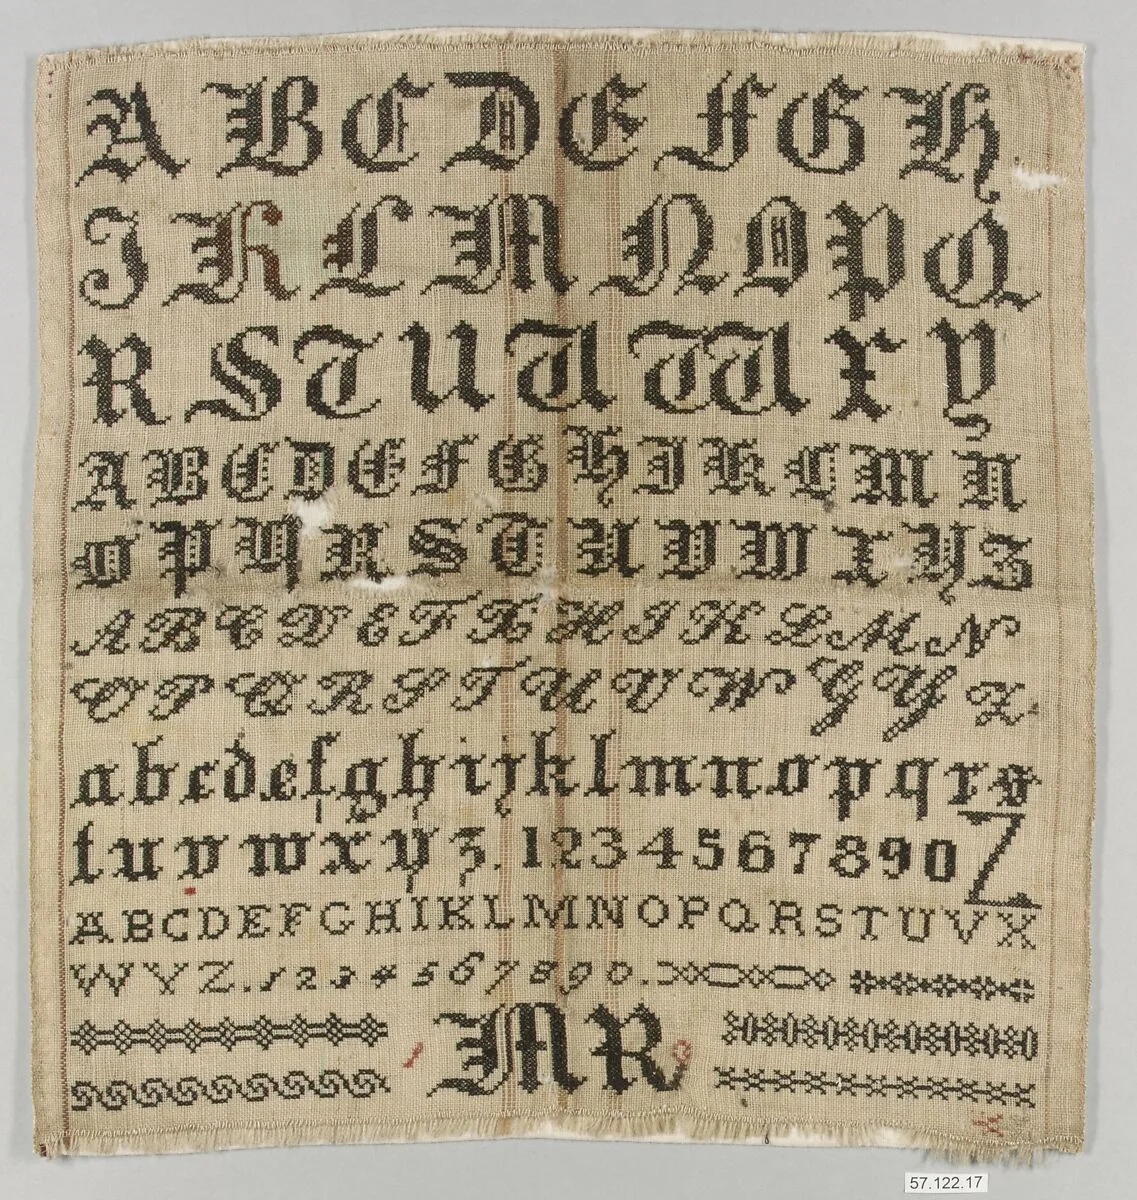 A B C D E F G H
I K L M N O P Q
R S T U V W X Y
A B C D E F G H I K L M N
O P Q R S T U V W X Y Z
A B C D E F G H I K L M N
O P Q R S T U V W X Y Z
a b c d e f g h i j k l m n o p q r s
t u v w x y z . 1 2 3 4 5 6 7 8 9 0 Z
A B C D E F G H I K L M N O P Q R S T U V X
W Y Z . 1 2 3 4 5 6 7 8 9 0 .
M R
57.122.17